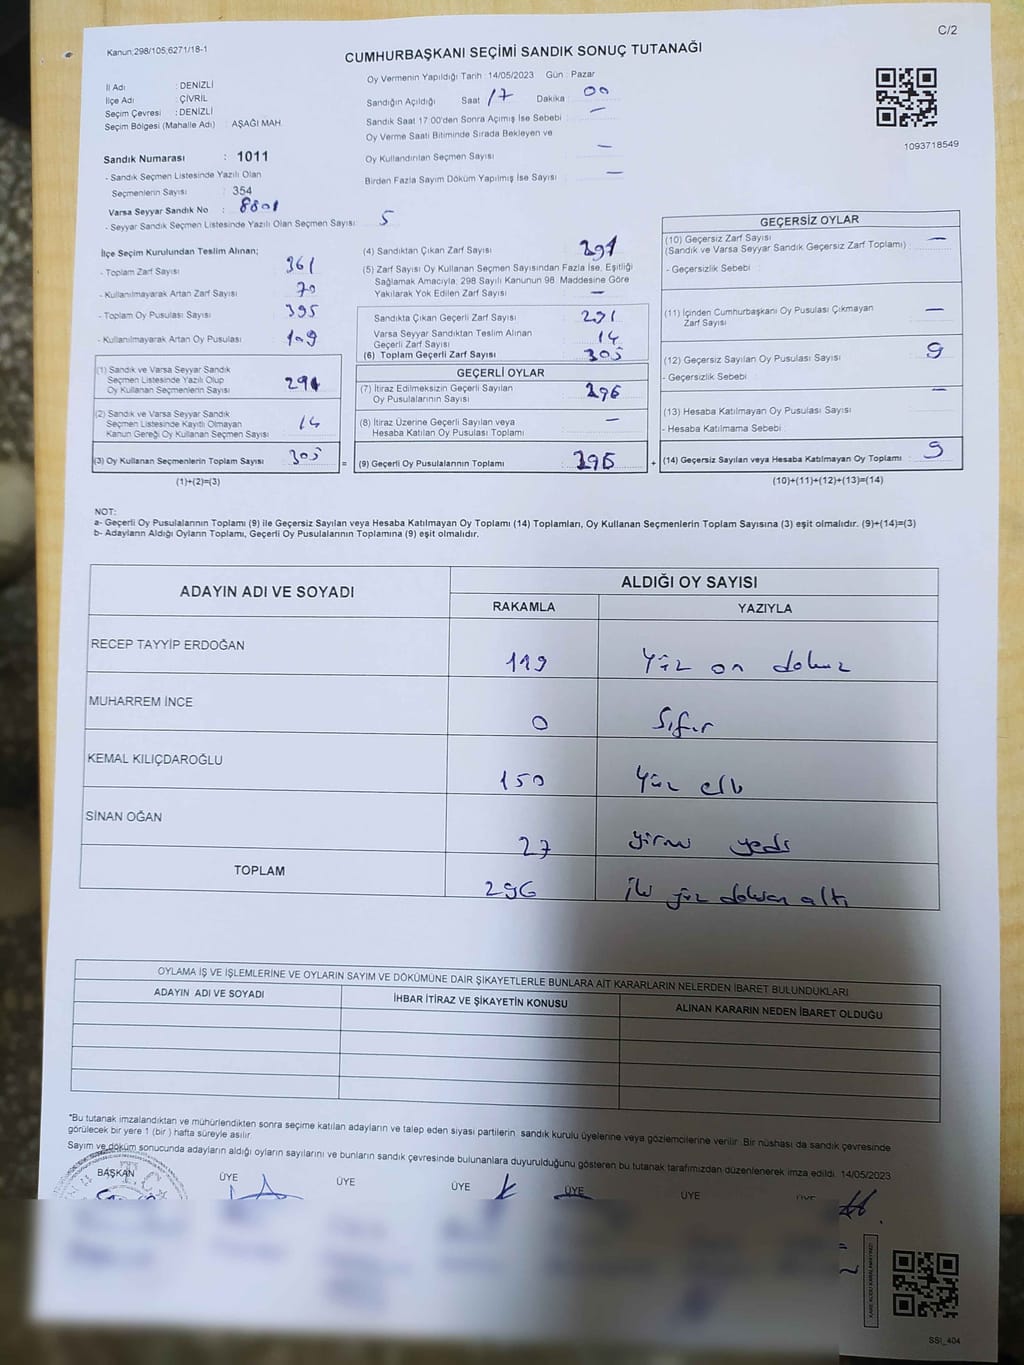 Kanun;298/105;6271/18-1
C/2
CUMHURBAŞKANI SEÇİMİ SANDIK SONUÇ TUTANAĞI
İl Adı : DENİZLİ
İlçe Adı : ÇİVRİL
Seçim Çevresi : DENİZLİ
Seçim Bölgesi (Mahalle Adı) : AŞAĞI MAH.
Oy Vermenin Yapıldığı Tarih : 14/05/2023 Gün : Pazar
Sandığın Açıldığı Saat 17 Dakika : 00
Sandık Saat 17:00'den Sonra Açımış İse Sebebi : —
Oy Verme Saati Bitiminde Sırada Bekleyen ve
Oy Kullandırılan Seçmen Sayısı : —
Birden Fazla Sayım Döküm Yapılmış İse Sayısı : —
1093718549
Sandık Numarası : 1011
- Sandık Seçmen Listesinde Yazılı Olan
Seçmenlerin Sayısı : 354
Varsa Seyyar Sandık No : 8801
- Seyyar Sandık Seçmen Listesinde Yazılı Olan Seçmen Sayısı : 5
İlçe Seçim Kurulundan Teslim Alınan;
- Toplam Zarf Sayısı : 361
- Kullanılmayarak Artan Zarf Sayısı : 70
- Toplam Oy Pusulası Sayısı : 395
- Kullanılmayarak Artan Oy Pusulası : 109
(1) Sandık ve Varsa Seyyar Sandık
Seçmen Listesinde Yazılı Olup
Oy Kullanan Seçmenlerin Sayısı : 291
(2) Sandık ve Varsa Seyyar Sandık
Seçmen Listesinde Kayıtlı Olmayan
Kanun Gereği Oy Kullanan Seçmen Sayısı : 14
(3) Oy Kullanan Seçmenlerin Toplam Sayısı : 305
(1)+(2)=(3)
(4) Sandıktan Çıkan Zarf Sayısı : 291
(5) Zarf Sayısı Oy Kullanan Seçmen Sayısından Fazla İse, Eşitliği
Sağlamak Amacıyla; 298 Sayılı Kanunun 98. Maddesine Göre
Yakılarak Yok Edilen Zarf Sayısı : —
Sandıkta Çıkan Geçerli Zarf Sayısı : 291
Varsa Seyyar Sandıktan Teslim Alınan
Geçerli Zarf Sayısı : 14
(6) Toplam Geçerli Zarf Sayısı : 305
GEÇERLİ OYLAR
(7) İtiraz Edilmeksizin Geçerli Sayılan
Oy Pusulalarının Sayısı : 296
(8) İtiraz Üzerine Geçerli Sayılan veya
Hesaba Katılan Oy Pusulası Toplamı : —
= (9) Geçerli Oy Pusulalarının Toplamı : 296 +
GEÇERSİZ OYLAR
(10) Geçersiz Zarf Sayısı
(Sandık ve Varsa Seyyar Sandık Geçersiz Zarf Toplamı) : —
- Geçersizlik Sebebi :
(11) İçinden Cumhurbaşkanı Oy Pusulası Çıkmayan
Zarf Sayısı : —
(12) Geçersiz Sayılan Oy Pusulası Sayısı : 9
- Geçersizlik Sebebi :
(13) Hesaba Katılmayan Oy Pusulası Sayısı : —
- Hesaba Katılmama Sebebi :
(14) Geçersiz Sayılan veya Hesaba Katılmayan Oy Toplamı : 9
(10)+(11)+(12)+(13)=(14)
NOT:
a- Geçerli Oy Pusulalarının Toplamı (9) ile Geçersiz Sayılan veya Hesaba Katılmayan Oy Toplamı (14) Toplamları, Oy Kullanan Seçmenlerin Toplam Sayısına (3) eşit olmalıdır. (9)+(14)=(3)
b- Adayların Aldığı Oyların Toplamı, Geçerli Oy Pusulalarının Toplamına (9) eşit olmalıdır.
ADAYIN ADI VE SOYADI ALDIĞI OY SAYISI
RAKAMLA YAZIYLA
RECEP TAYYİP ERDOĞAN 119 Yüz on dokuz
MUHARREM İNCE 0 Sıfır
KEMAL KILIÇDAROĞLU 150 Yüz elli
SİNAN OĞAN 27 yirmi yedi
TOPLAM 296 iki yüz doksan altı
OYLAMA İŞ VE İŞLEMLERİNE VE OYLARIN SAYIM VE DÖKÜMÜNE DAİR ŞİKAYETLERLE BUNLARA AİT KARARLARIN NELERDEN İBARET BULUNDUKLARI
ADAYIN ADI VE SOYADI İHBAR İTİRAZ VE ŞİKAYETİN KONUSU ALINAN KARARIN NEDEN İBARET OLDUĞU
*Bu tutanak imzalandıktan ve mühürlendikten sonra seçime katılan adayların ve talep eden siyasi partilerin sandık kurulu üyelerine veya gözlemcilerine verilir. Bir nüshası da sandık çevresinde
görülecek bir yere 1 (bir) hafta süreyle asılır.
Sayım ve döküm sonucunda adayların aldığı oyların sayılarını ve bunların sandık çevresinde bulunanlara duyurulduğunu gösteren bu tutanak tarafımızdan düzenlenerek imza edildi. 14/05/2023
BAŞKAN ÜYE ÜYE ÜYE ÜYE ÜYE ÜYE
SSI_404